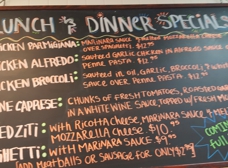 LUNCH & DINNER SPECIALS
CHICKEN PARMIGIANA: MARINARA SAUCE MOZZARELLA CHEESE
OVER SPAGHETTI. $12.99
CKEN ALFREDO: Sauteed GARLIC CHICKEN IN ALFREDO SAUCE
PENNE PASTA. $12.99
ICKEN BROCCOLI: Sauteed IN OIL, GARLIC, BROCCOLI, &
SAUCE OVER PENNE PASTA. $12
NE CAPRESE: CHUNKS OF FRESH TOMATOES, ROASTED
IN A WHITE WINE SAUCE, TOPPED W/ FRESH
ED ZITI: with RICOTTA CHEESE, MARINARA SAUCE &
MOZZARELLA CHEESE $10.
GHETTI: with MARINARA SAUCE $9.99
ADD MEATBALLS OR SAUSAGE FOR ONLY